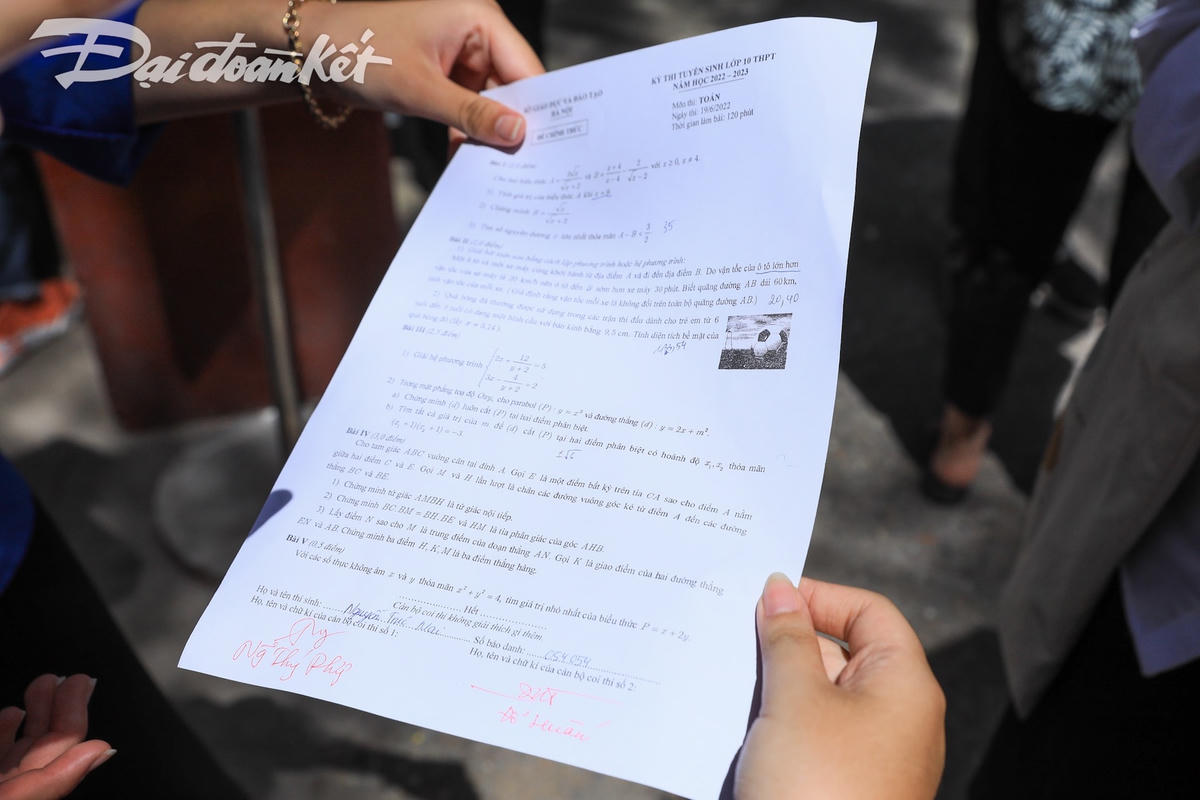 Đại đoàn kết
SỞ GIÁO DỤC VÀ ĐÀO TẠO
HÀ NỘI
ĐỀ CHÍNH THỨC
KỲ THI TUYỂN SINH LỚP 10 THPT
NĂM HỌC 2022 – 2023
Môn thi: TOÁN
Ngày thi: 19/6/2022
Thời gian làm bài: 120 phút
Bài I (2,0 điểm)
Cho hai biểu thức A = 3√x/(√x + 2) và B = (x + 4)/(x − 4) − 2/(√x − 2) với x ≥ 0, x ≠ 4.
1) Tính giá trị của biểu thức A khi x = 9.
2) Chứng minh B = √x/(√x + 2)
3) Tìm số nguyên dương x lớn nhất thỏa mãn A − B < 3/2 35
Bài II (2,0 điểm)
1) Giải bài toán sau bằng cách lập phương trình hoặc hệ phương trình:
Một ô tô và một xe máy cùng khởi hành từ địa điểm A và đi đến địa điểm B. Do vận tốc của ô tô lớn hơn
vận tốc của xe máy là 20 km/h nên ô tô đến B sớm hơn xe máy 30 phút. Biết quãng đường AB dài 60 km,
tính vận tốc của mỗi xe. (Giả định rằng vận tốc mỗi xe là không đổi trên toàn bộ quãng đường AB.) 20, 40
2) Quả bóng đá thường được sử dụng trong các trận thi đấu dành cho trẻ em từ 6
tuổi đến 8 tuổi có dạng một hình cầu với bán kính bằng 9,5 cm. Tính diện tích bề mặt của
quả bóng đó (lấy π ≈ 3,14).
Bài III (2,5 điểm)
1) Giải hệ phương trình { 2x + 12/(y + 2) = 5
3x − 4/(y + 2) = 2
2) Trong mặt phẳng toạ độ Oxy, cho parabol (P) : y = x² và đường thẳng (d) : y = 2x + m².
a) Chứng minh (d) luôn cắt (P) tại hai điểm phân biệt.
b) Tìm tất cả giá trị của m để (d) cắt (P) tại hai điểm phân biệt có hoành độ x₁, x₂ thỏa mãn
(x₁ + 1)(x₂ + 1) = −3.
Bài IV (3,0 điểm)
Cho tam giác ABC vuông cân tại đỉnh A. Gọi E là một điểm bất kỳ trên tia CA sao cho điểm A nằm
giữa hai điểm C và E. Gọi M và H lần lượt là chân các đường vuông góc kẻ từ điểm A đến các đường
thẳng BC và BE.
1) Chứng minh tứ giác AMBH là tứ giác nội tiếp.
2) Chứng minh BC.BM = BH.BE và HM là tia phân giác của góc AHB.
3) Lấy điểm N sao cho M là trung điểm của đoạn thẳng AN. Gọi K là giao điểm của hai đường thẳng
EN và AB. Chứng minh ba điểm H, K, M là ba điểm thẳng hàng.
Bài V (0,5 điểm)
Với các số thực không âm x và y thỏa mãn x² + y² = 4, tìm giá trị nhỏ nhất của biểu thức P = x + 2y.
.................... Hết ....................
Cán bộ coi thi không giải thích gì thêm.
Họ và tên thí sinh: Nguyễn Số báo danh: 054054
Họ, tên và chữ kí của cán bộ coi thi số 1: Họ, tên và chữ kí của cán bộ coi thi số 2: